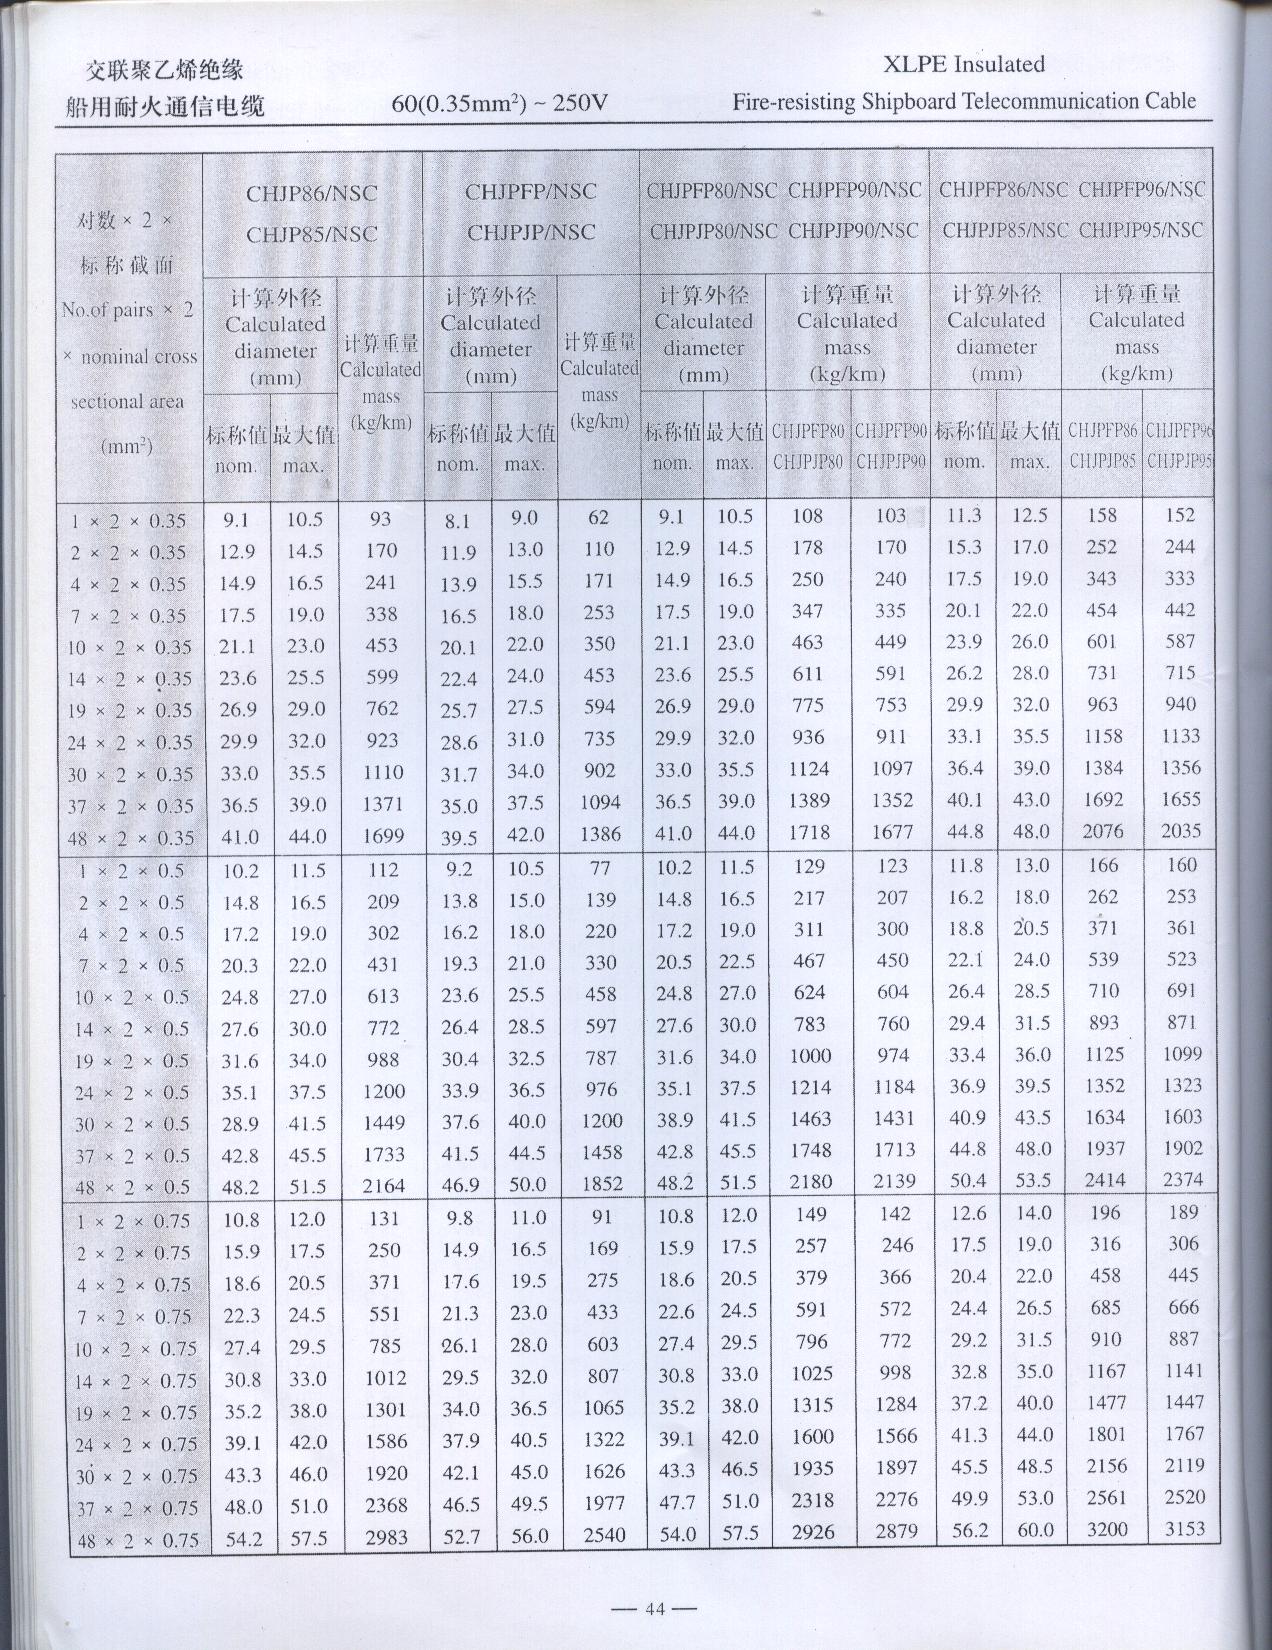 交联聚乙烯绝缘
XLPE Insulated
船用耐火通信电缆 60(0.35mm²) ~ 250V Fire-resisting Shipboard Telecommunication Cable
对数 × 2 ×
标称截面
No.of pairs × 2
× nominal cross
sectional area
(mm²)
CHJP86/NSC
CHJP85/NSC
CHJPFP/NSC
CHJPJP/NSC
CHJPFP80/NSC CHJPFP90/NSC
CHJPJP80/NSC CHJPJP90/NSC
CHJPFP86/NSC CHJPFP96/NSC
CHJPJP85/NSC CHJPJP95/NSC
计算外径
Calculated
diameter
(mm)
计算重量
Calculated
mass
(kg/km)
计算外径
Calculated
diameter
(mm)
计算重量
Calculated
mass
(kg/km)
计算外径
Calculated
diameter
(mm)
计算重量
Calculated
mass
(kg/km)
计算外径
Calculated
diameter
(mm)
计算重量
Calculated
mass
(kg/km)
标称值 最大值 标称值 最大值 标称值 最大值 CHJPFP80 CHJPFP90 标称值 最大值 CHJPFP86 CHJPFP96
nom. max. nom. max. nom. max. CHJPJP80 CHJPJP90 nom. max. CHJPJP85 CHJPJP95
1 × 2 × 0.35 9.1 10.5 93 8.1 9.0 62 9.1 10.5 108 103 11.3 12.5 158 152
2 × 2 × 0.35 12.9 14.5 170 11.9 13.0 110 12.9 14.5 178 170 15.3 17.0 252 244
4 × 2 × 0.35 14.9 16.5 241 13.9 15.5 171 14.9 16.5 250 240 17.5 19.0 343 333
7 × 2 × 0.35 17.5 19.0 338 16.5 18.0 253 17.5 19.0 347 335 20.1 22.0 454 442
10 × 2 × 0.35 21.1 23.0 453 20.1 22.0 350 21.1 23.0 463 449 23.9 26.0 601 587
14 × 2 × 0.35 23.6 25.5 599 22.4 24.0 453 23.6 25.5 611 591 26.2 28.0 731 715
19 × 2 × 0.35 26.9 29.0 762 25.7 27.5 594 26.9 29.0 775 753 29.9 32.0 963 940
24 × 2 × 0.35 29.9 32.0 923 28.6 31.0 735 29.9 32.0 936 911 33.1 35.5 1158 1133
30 × 2 × 0.35 33.0 35.5 1110 31.7 34.0 902 33.0 35.5 1124 1097 36.4 39.0 1384 1356
37 × 2 × 0.35 36.5 39.0 1371 35.0 37.5 1094 36.5 39.0 1389 1352 40.1 43.0 1692 1655
48 × 2 × 0.35 41.0 44.0 1699 39.5 42.0 1386 41.0 44.0 1718 1677 44.8 48.0 2076 2035
1 × 2 × 0.5 10.2 11.5 112 9.2 10.5 77 10.2 11.5 129 123 11.8 13.0 166 160
2 × 2 × 0.5 14.8 16.5 209 13.8 15.0 139 14.8 16.5 217 207 16.2 18.0 262 253
4 × 2 × 0.5 17.2 19.0 302 16.2 18.0 220 17.2 19.0 311 300 18.8 20.5 371 361
7 × 2 × 0.5 20.3 22.0 431 19.3 21.0 330 20.5 22.5 467 450 22.1 24.0 539 523
10 × 2 × 0.5 24.8 27.0 613 23.6 25.5 458 24.8 27.0 624 604 26.4 28.5 710 691
14 × 2 × 0.5 27.6 30.0 772 26.4 28.5 597 27.6 30.0 783 760 29.4 31.5 893 871
19 × 2 × 0.5 31.6 34.0 988 30.4 32.5 787 31.6 34.0 1000 974 33.4 36.0 1125 1099
24 × 2 × 0.5 35.1 37.5 1200 33.9 36.5 976 35.1 37.5 1214 1184 36.9 39.5 1352 1323
30 × 2 × 0.5 28.9 41.5 1449 37.6 40.0 1200 38.9 41.5 1463 1431 40.9 43.5 1634 1603
37 × 2 × 0.5 42.8 45.5 1733 41.5 44.5 1458 42.8 45.5 1748 1713 44.8 48.0 1937 1902
48 × 2 × 0.5 48.2 51.5 2164 46.9 50.0 1852 48.2 51.5 2180 2139 50.4 53.5 2414 2374
1 × 2 × 0.75 10.8 12.0 131 9.8 11.0 91 10.8 12.0 149 142 12.6 14.0 196 189
2 × 2 × 0.75 15.9 17.5 250 14.9 16.5 169 15.9 17.5 257 246 17.5 19.0 316 306
4 × 2 × 0.75 18.6 20.5 371 17.6 19.5 275 18.6 20.5 379 366 20.4 22.0 458 445
7 × 2 × 0.75 22.3 24.5 551 21.3 23.0 433 22.6 24.5 591 572 24.4 26.5 685 666
10 × 2 × 0.75 27.4 29.5 785 26.1 28.0 603 27.4 29.5 796 772 29.2 31.5 910 887
14 × 2 × 0.75 30.8 33.0 1012 29.5 32.0 807 30.8 33.0 1025 998 32.8 35.0 1167 1141
19 × 2 × 0.75 35.2 38.0 1301 34.0 36.5 1065 35.2 38.0 1315 1284 37.2 40.0 1477 1447
24 × 2 × 0.75 39.1 42.0 1586 37.9 40.5 1322 39.1 42.0 1600 1566 41.3 44.0 1801 1767
30 × 2 × 0.75 43.3 46.0 1920 42.1 45.0 1626 43.3 46.5 1935 1897 45.5 48.5 2156 2119
37 × 2 × 0.75 48.0 51.0 2368 46.5 49.5 1977 47.7 51.0 2318 2276 49.9 53.0 2561 2520
48 × 2 × 0.75 54.2 57.5 2983 52.7 56.0 2540 54.0 57.5 2926 2879 56.2 60.0 3200 3153
— 44 —